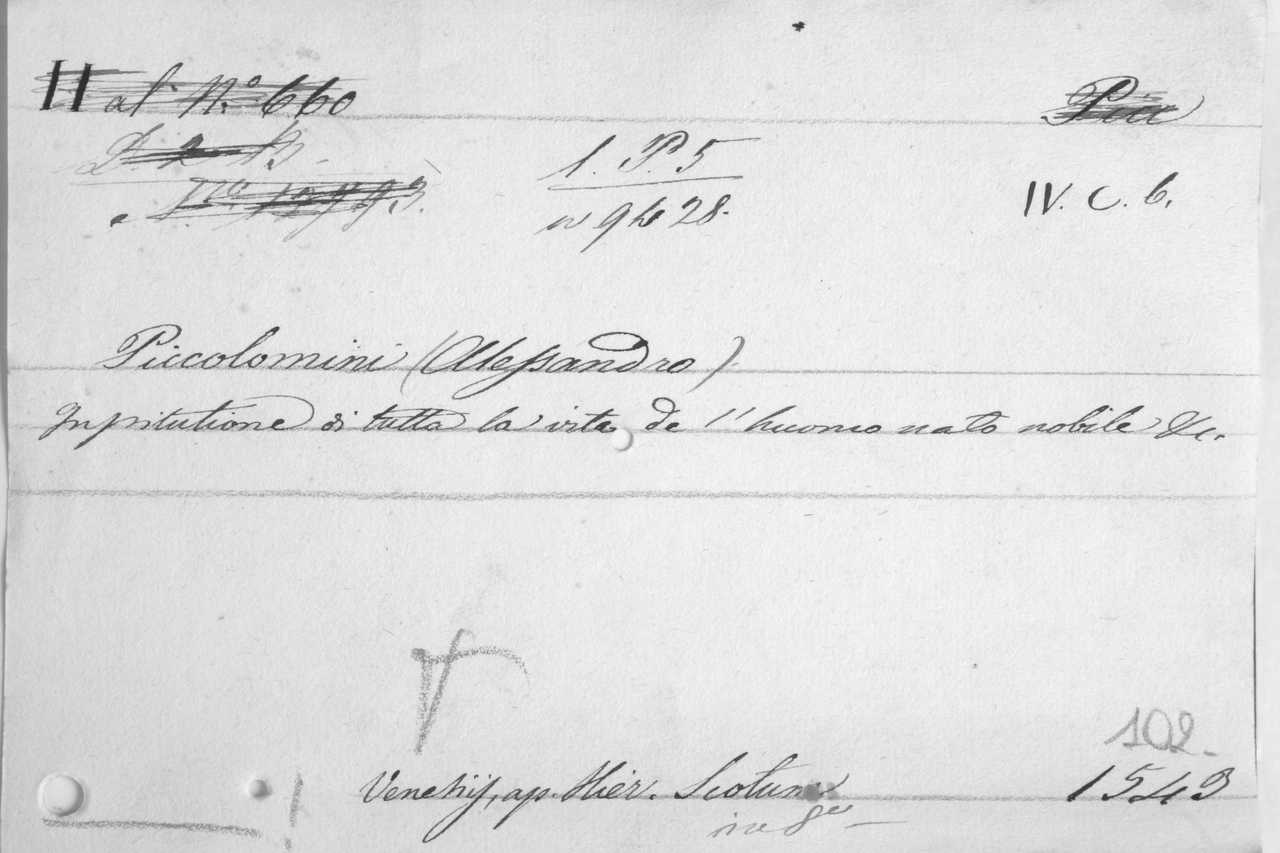 al N.º 660
Pic
1. P. 5
IV. C. 6.
Piccolomini (Alessandro)
Institutione di tutta la vita de l'huomo nato nobile &c.
102.
Venetijs, ap. Hier. Scotum 1543
in 8º